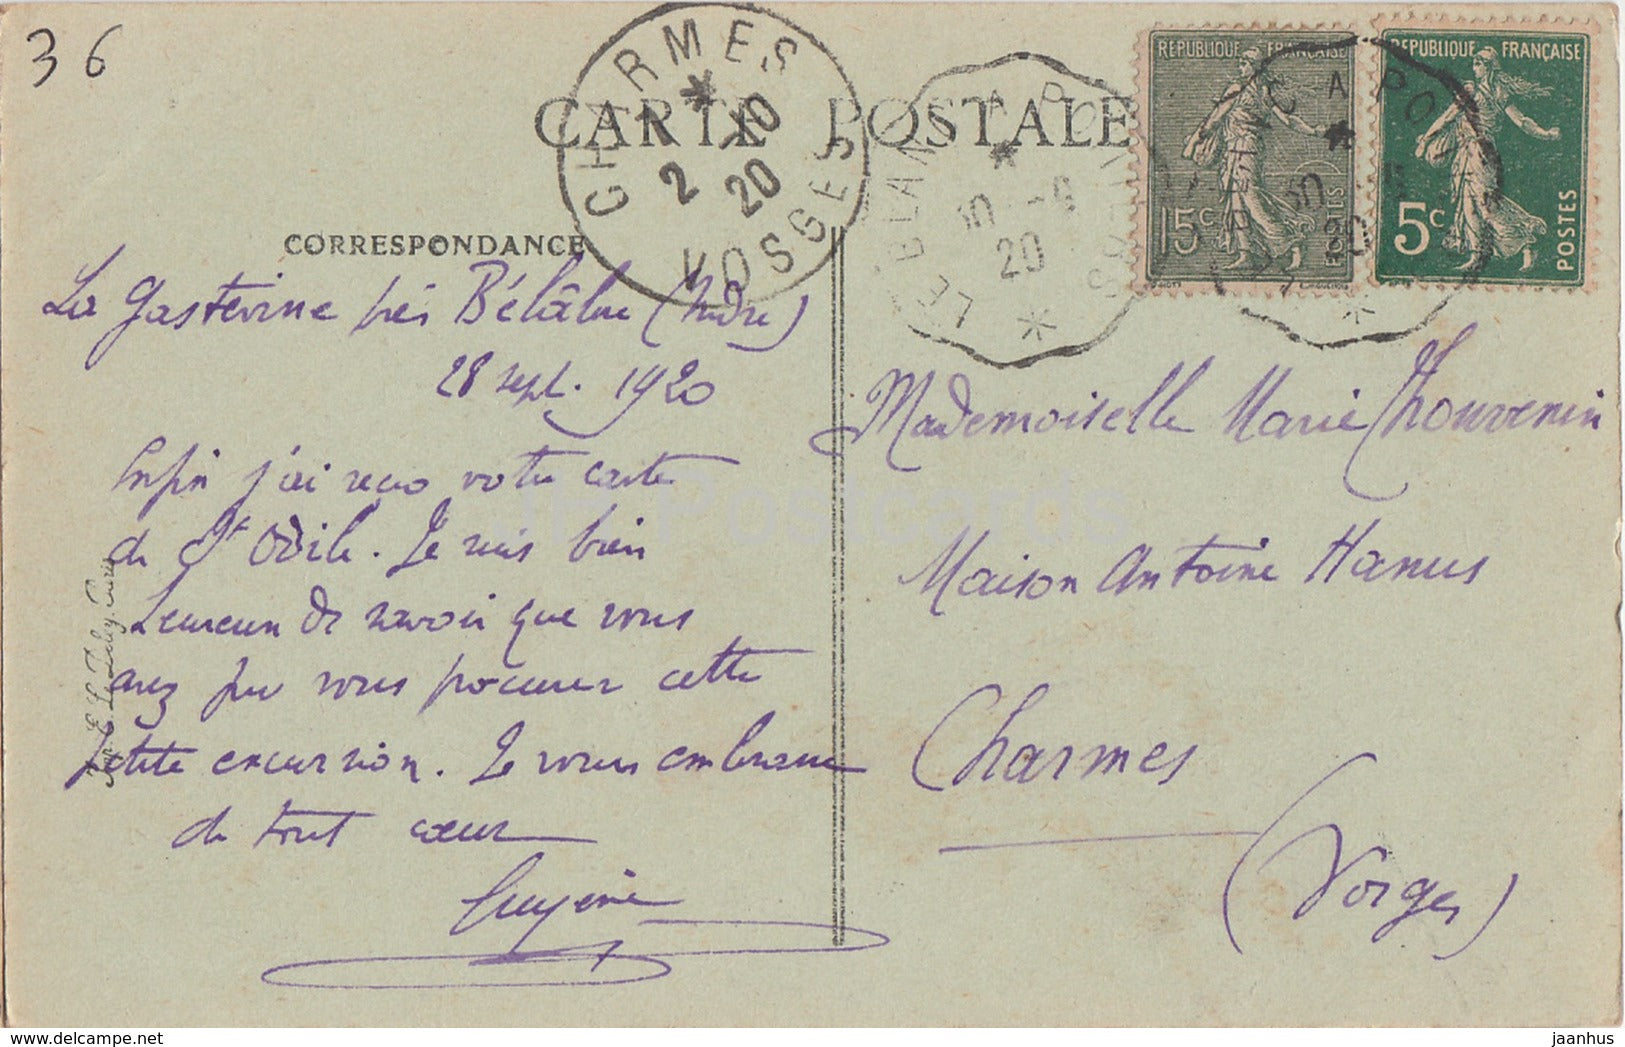 36
CARTE POSTALE
CHARMES
2 - 10
20
VOSGES
LE BLANC A PO
10
20
REPUBLIQUE FRANÇAISE
15c
POSTES
REPUBLIQUE FRANÇAISE
5c
POSTES
CORRESPONDANCE
La Gasterine près Bélâbre (Indre)
28 sept. 1920
Enfin j'ai reçu votre carte
de Ste Odile. Je suis bien
heureux de savoir que vous
avez pu vous procurer cette
petite excursion. Je vous embrasse
de tout cœur
Eugène
Mademoiselle Marie Thouvenin
Maison Antoine Hanus
Charmes
(Vosges)
JH Postcards
jaanhus